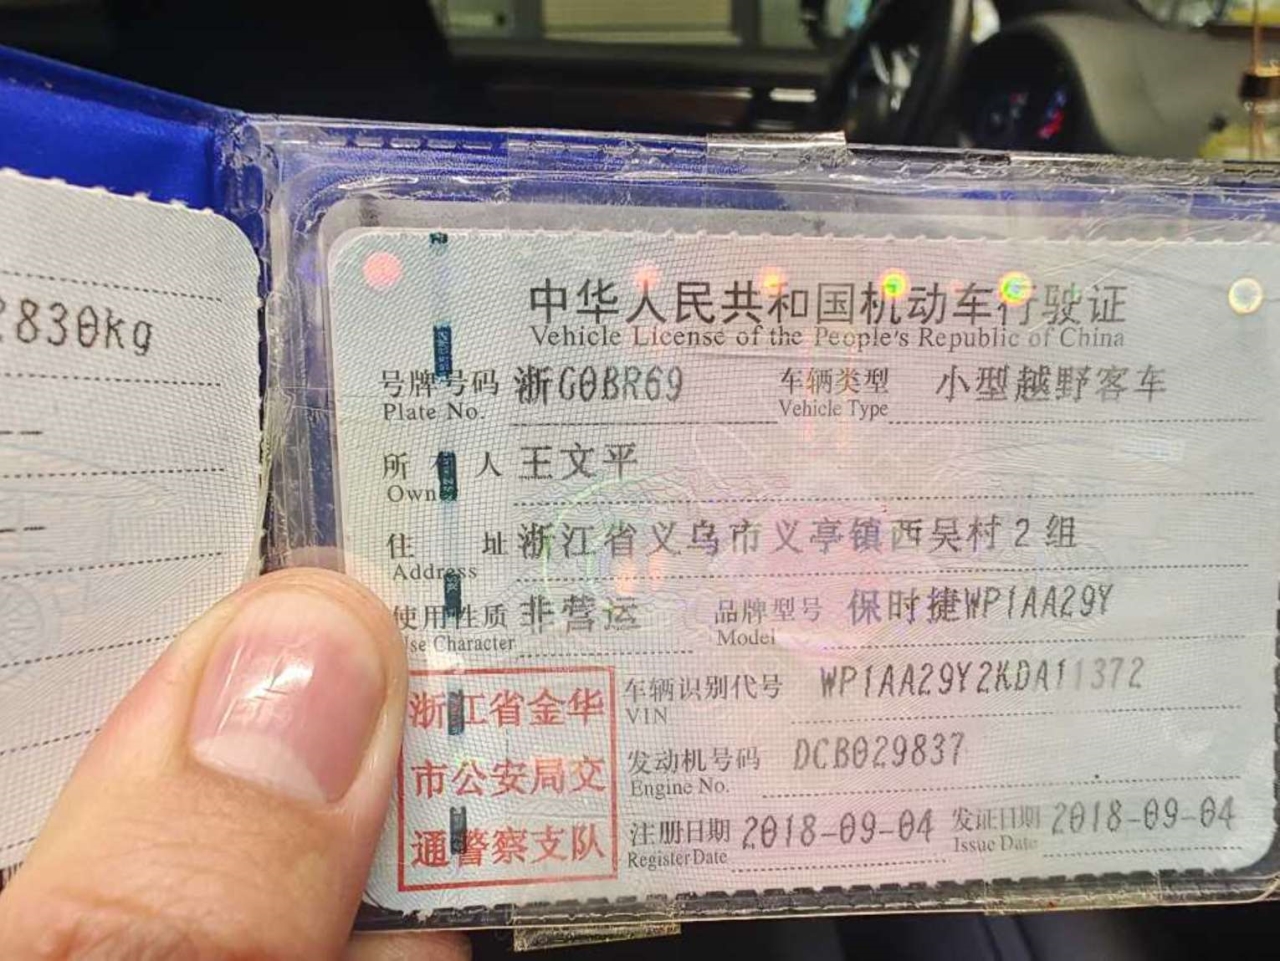 830kg
中华人民共和国机动车行驶证
Vehicle License of the People's Republic of China
号牌号码 浙G0BR69 车辆类型 小型越野客车
Plate No. Vehicle Type
所有人 王文平
Own
住址 浙江省义乌市义亭镇西吴村2组
Address
使用性质 非营运 品牌型号 保时捷WP1AA29Y
Use Character Model
车辆识别代号 WP1AA29Y2KDA11372
VIN
发动机号码 DCB029837
Engine No.
注册日期 2018-09-04 发证日期 2018-09-04
Register Date Issue Date
浙江省金华
市公安局交
通警察支队